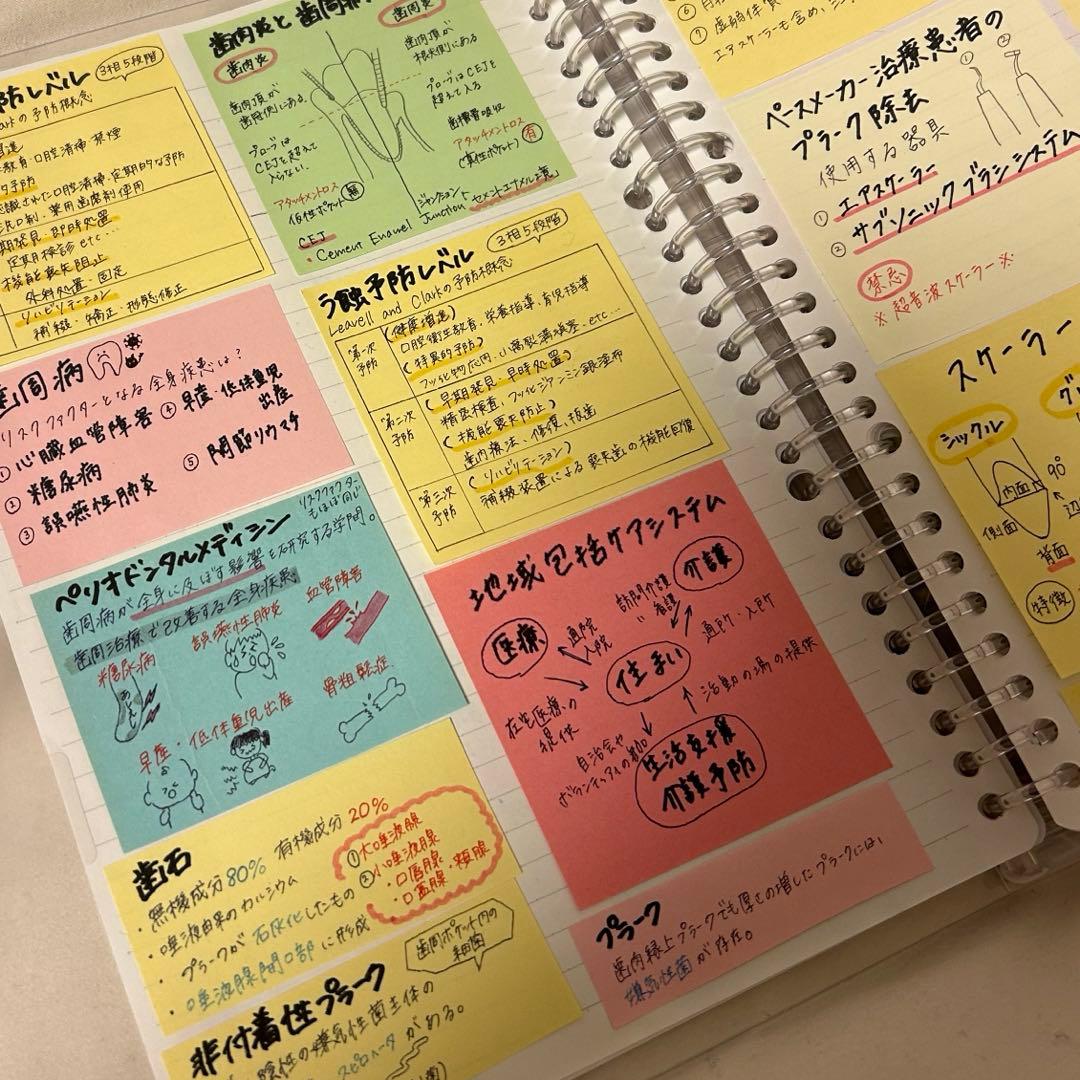 防レベル
3相5段階
arkの予防概念
増進
教育・口腔清掃 禁煙
的予防
認識された口腔清掃・定期的な予防
洗口剤、薬用歯磨剤使用
期発見・即時処置
定期検診etc…
機能喪失阻止
外科処置・固定
リハビリテーション
補綴・矯正・形態修正
歯肉炎と歯周病
歯肉炎
歯肉頂が
歯冠側にある。
プローブは
CEJを超えて
入らない。
アタッチメントロス 無
仮性ポケット
CEJ
・Cement Enamel Junction
ジャンクション
セメントエナメル境
歯周炎
歯肉頂が
根尖側にある
プローブはCEJを
超えて入る
歯槽骨吸収
アタッチメントロス 有
(真性ポケット)
う蝕予防レベル
3相5段階
Leavell and Clarkの予防概念
第一次
予防
(健康増進)
口腔衛生教育、栄養指導、育児指導
(特異的予防)
フッ化物応用、小窩裂溝填塞、etc…
第二次
予防
(早期発見・早時処置)
精密検査、フッ化ジアンミン銀塗布
(機能喪失防止)
歯内療法、修復、抜歯
第三次
予防
(リハビリテーション)
補綴装置による喪失歯の機能回復
歯周病
リスクファクターとなる全身疾患は?
① 心臓血管障害
② 糖尿病
③ 誤嚥性肺炎
④ 早産・低体重児
出産
⑤ 関節リウマチ
ペリオドンタルメディシン
リスクファクター
もほぼ同じ
歯周病が全身に及ぼす影響を研究する学問。
歯周治療で改善する全身疾患
糖尿病
誤嚥性肺炎
血管障害
早産・低体重児出産
骨粗鬆症
地域包括ケアシステム
医療
介護
住まい
生活支援
介護予防
通院
入院
訪問介護
〃 看護
通所・入所
在宅医療の
提供
活動の場の提供
自治会や
ボランティアの参加
歯石
無機成分80% 有機成分20%
・唾液由来のカルシウム
プラークが石灰化したもの
・唾液腺開口部に形成
①大唾液腺
②小唾液腺
・口唇腺・頬腺
・口蓋腺
非付着性プラーク
歯周ポケット内の
細菌
陰性の嫌気性菌主体の
スピロヘータがある。
プラーク
歯肉縁上プラークでも厚さの増したプラークには、
嫌気性菌が存在。
⑦ 虚弱体質
エアスケーラーも含め、
ペースメーカー治療患者の
プラーク除去
使用する器具
① エアスケーラー
② サブソニックブラシシステム
①
②
禁忌
※超音波スケーラー※
スケーラー
シックル
内面
側面
90°
背面
特徴